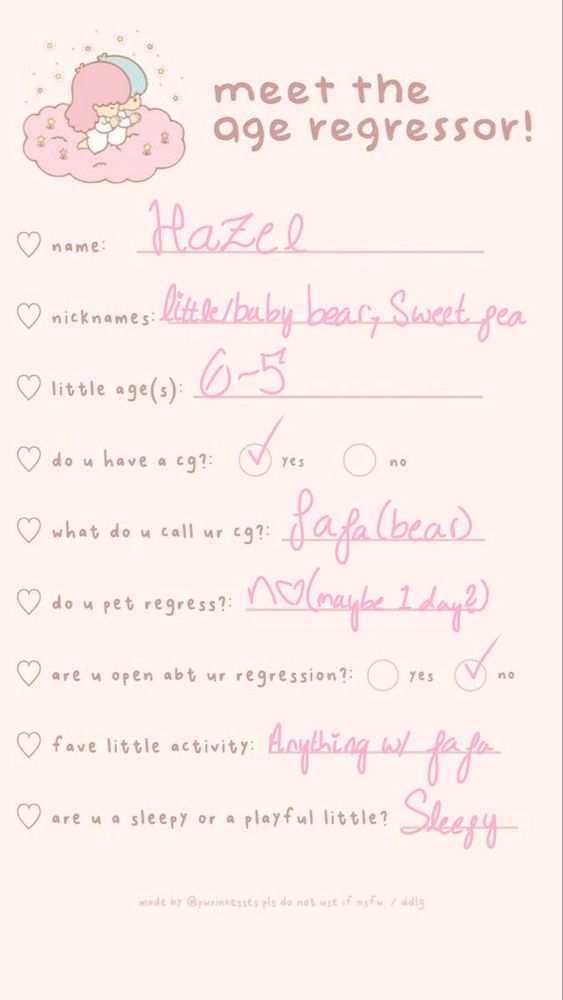 meet the
age regressor!
name: Hazel
nicknames: little/baby bear, Sweet pea
little age(s): 0-5
do u have a cg?: yes no
what do u call ur cg?: papa (bear)
do u pet regress?: no (maybe 1 day?)
are u open abt ur regression?: yes no
fave little activity: Anything w/ papa
are u a sleepy or a playful little? Sleepy
made by @pwrincesses pls do not use if nsfw / ddlg